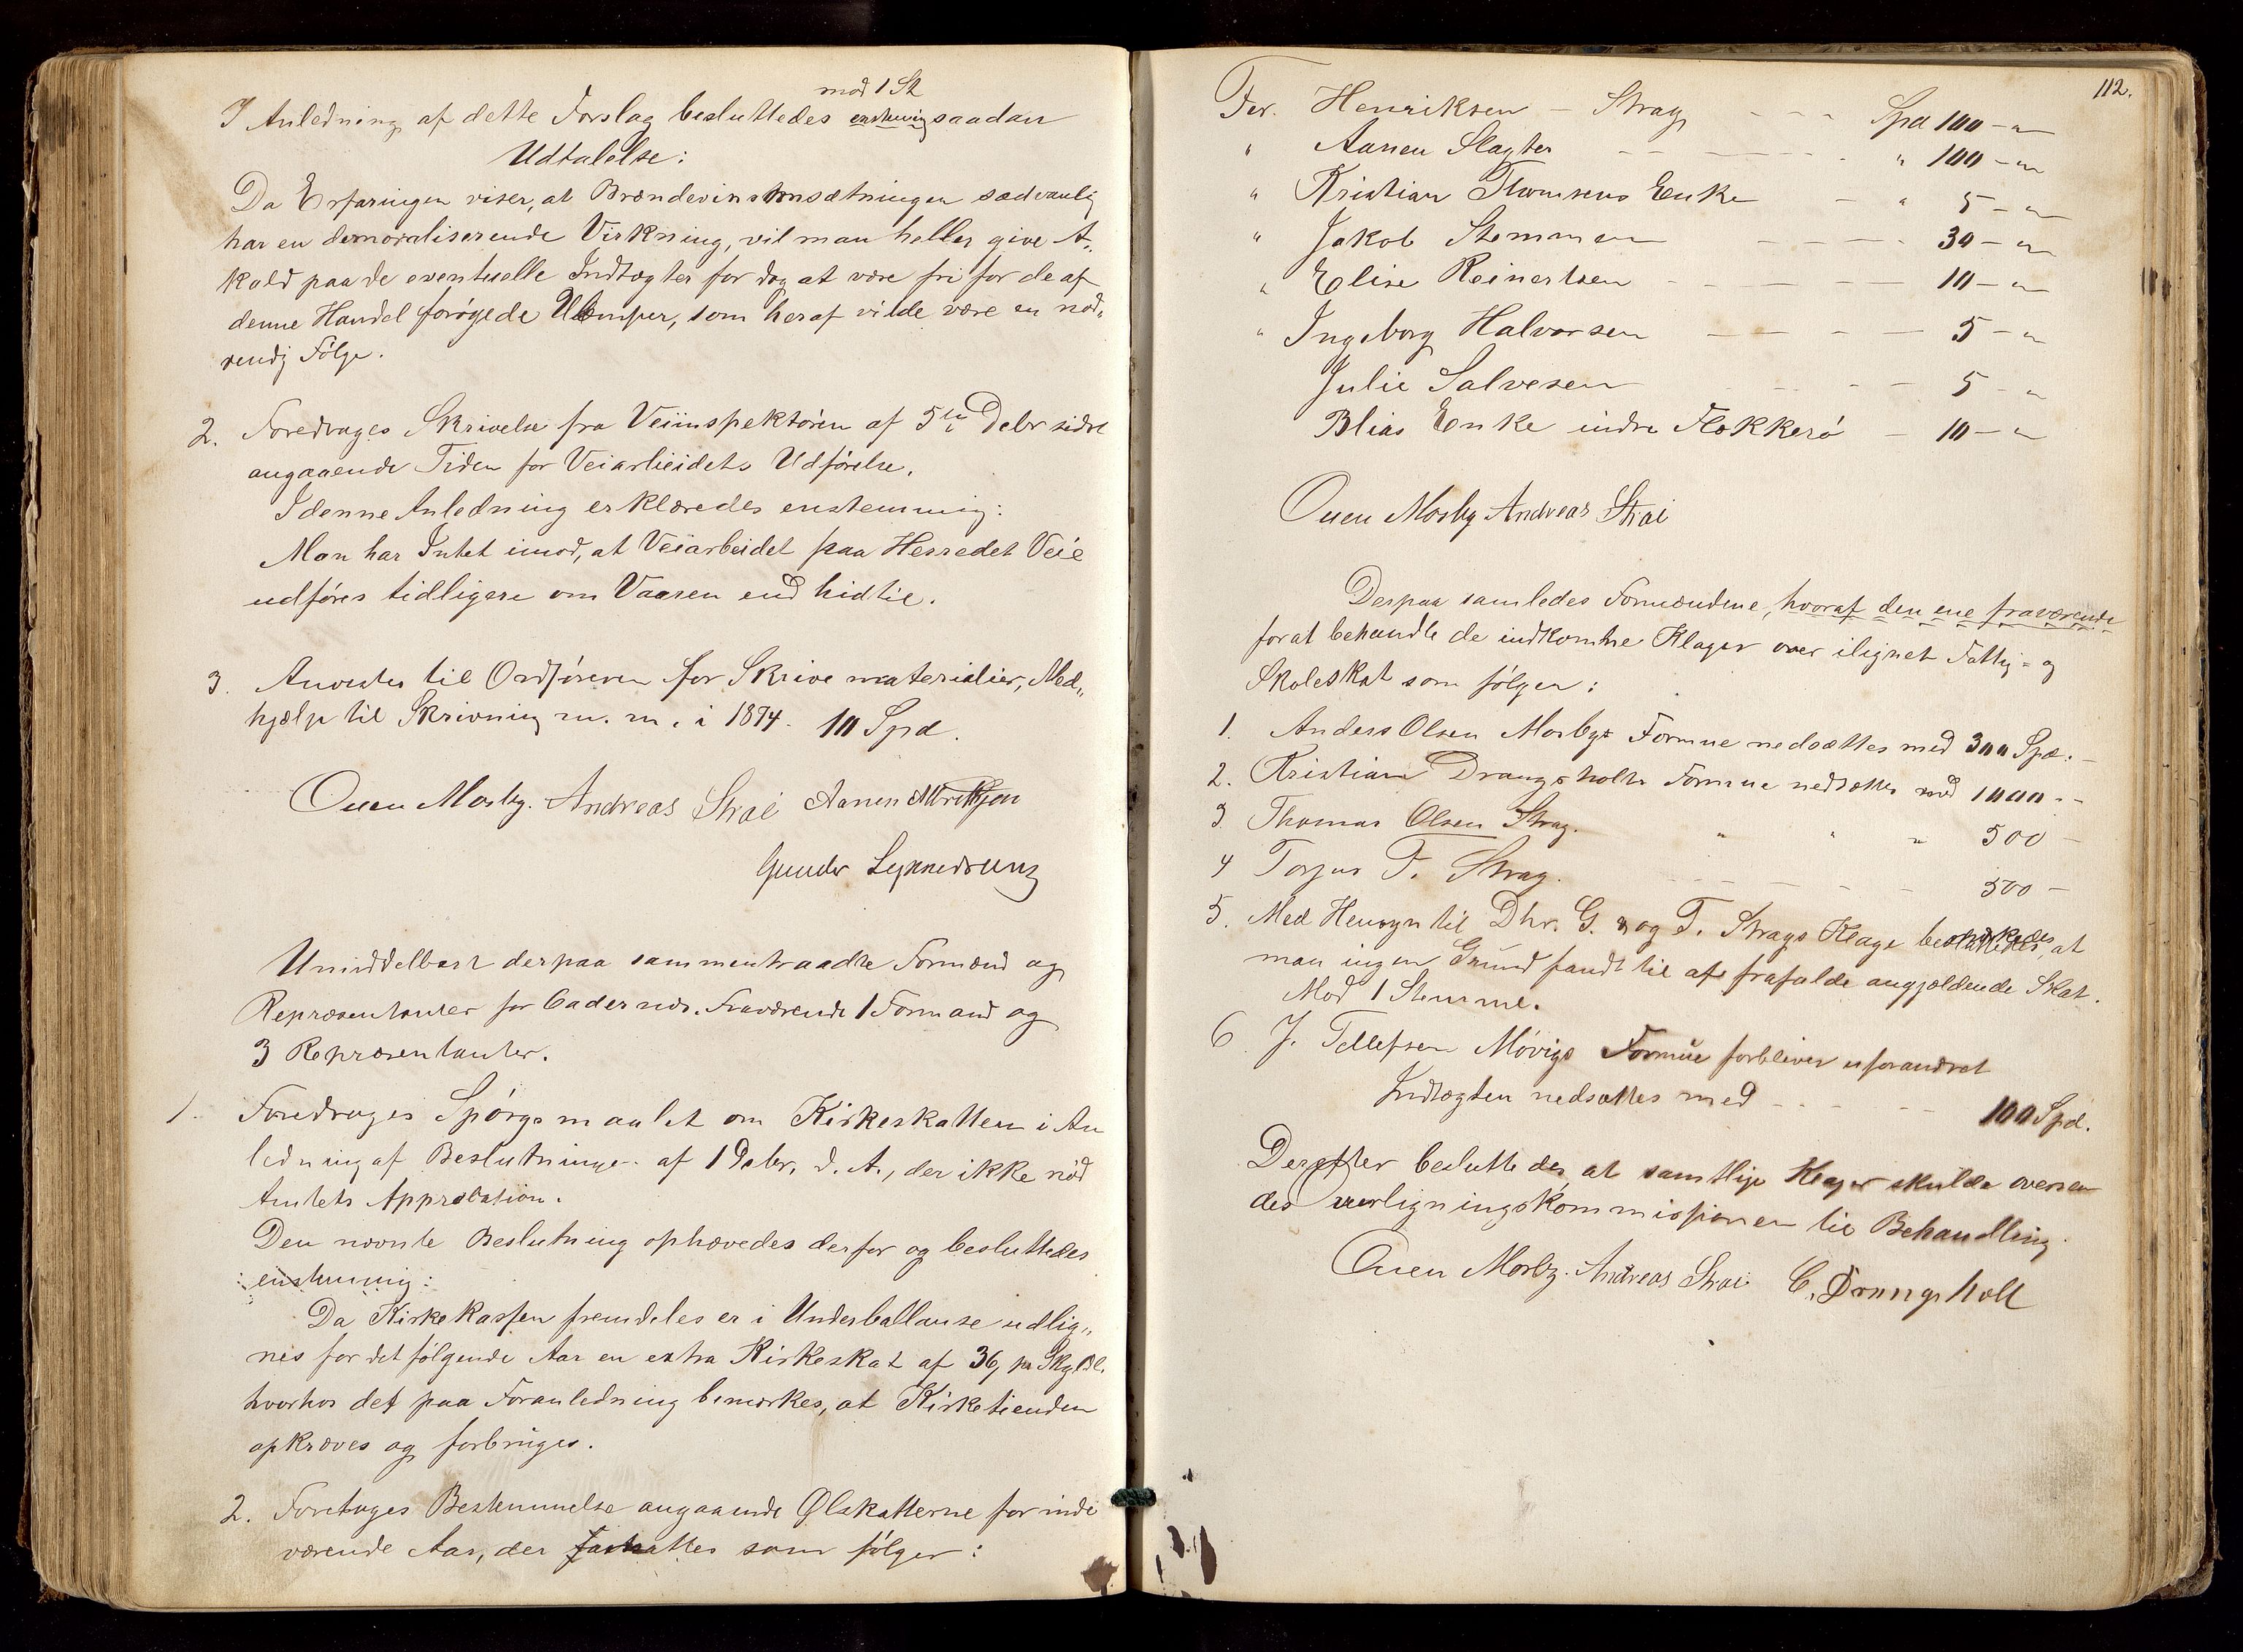 mod 1 St
I Anledning af dette Forslag besluttedes enstemig saadan
Udtalelse:
Da Erfaringen viser, at Brændevinsomsætningen sædvanlig
har en demoraliserende Virkning, vil man heller give A„
kald paa de eventuelle Indtægter for dog at være fri for de af
denne Handel forøgede Ulemper, som heraf vilde være en nød„
vendig Følge.
2. Foredroges Skrivelse fra Veiinspektøren af 5te Debr sidst
angaaende Tiden for Veiarbeidets Udførelse.
I denne Anledning erklæredes enstemmig:
Man har Intet imod, at Veiarbeidet paa Herredet Veie
udføres tidligere om Vaaren end hidtil.
3. Anvistes til Ordføreren for Skrivematerialier, Med„
hjælp til Skrivning m. m. i 1874. 10 Spd.
Ouen Mosby. Andreas Strai Aanen
Gunder
Umiddelbart derpaa sammentraadte Formænd og
Repræsentanter for Oddernæs. Fraværende 1 Formand og
3 Repræsentanter.
1. Foredroges Spørgsmaalet om Kirkeskatten i An
ledning af Beslutninge af 1 Debr. d. A., der ikke nød
Amtets Approbation.
Den nævnte Beslutning ophævedes derfor og besluttedes
enstemmig:
Da Kirkekassen fremdeles er i Underballanse udlig„
nes for det følgende Aar en extra Kirkeskat af 36, pr Skylddl.
hvorhos det paa Foranledning bemærkes, at Kirketienden
opkræves og forbruges.
2. Foretoges Bestemmelse angaaende Ølskatterne for inde
værende Aar, der fastsattes som følger:
112.
For. Henriksen – Strag – – – Spd 100 – "
" Aanen Slagter – – – – " 100 – "
" Kristian Thomsens Enke – " 5 – "
" Jakob Stemmen – – – 30 – "
" Elise Reinertsen – – – – 10 – "
" Ingeborg Halvorsen – – – 5 – "
Julie Salvesen – – – 5 – "
Blias Enke indre Flekkerø – 10 – "
Ouen Mosby Andreas Strai
Derpaa samledes Formændene, hvoraf den ene fraværende
for at behandle de indkomne Klager over ilignet Fattig- og
Skoleskat som følger:
1. Anders Olsen Mosbys Formue nedsættes med 300 Spd. –
2. Kristian Drangsholts Formue nedsættes med 1000 " –
3. Thomas Olsen Strag. " " " 500 –
4 Torjus T. Strag. – – – – – 500 –
5. Med Hensyn til Dhr. G. og T. Strags Klage bemærkedes, at
man ingen Grund fandt til at frafalde angjældende Skat.
Mod 1 Stemme.
6. J. Tellefsen Møvigs Formue forbliver uforandret
Indtægten nedsættes med – – – – 100 Spd.
Derefter besluttedes at samtlige Klager skulde oversen
des overligningskommissionen til Behandling.
Ouen Mosby. Andreas Strai C. Drangsholt